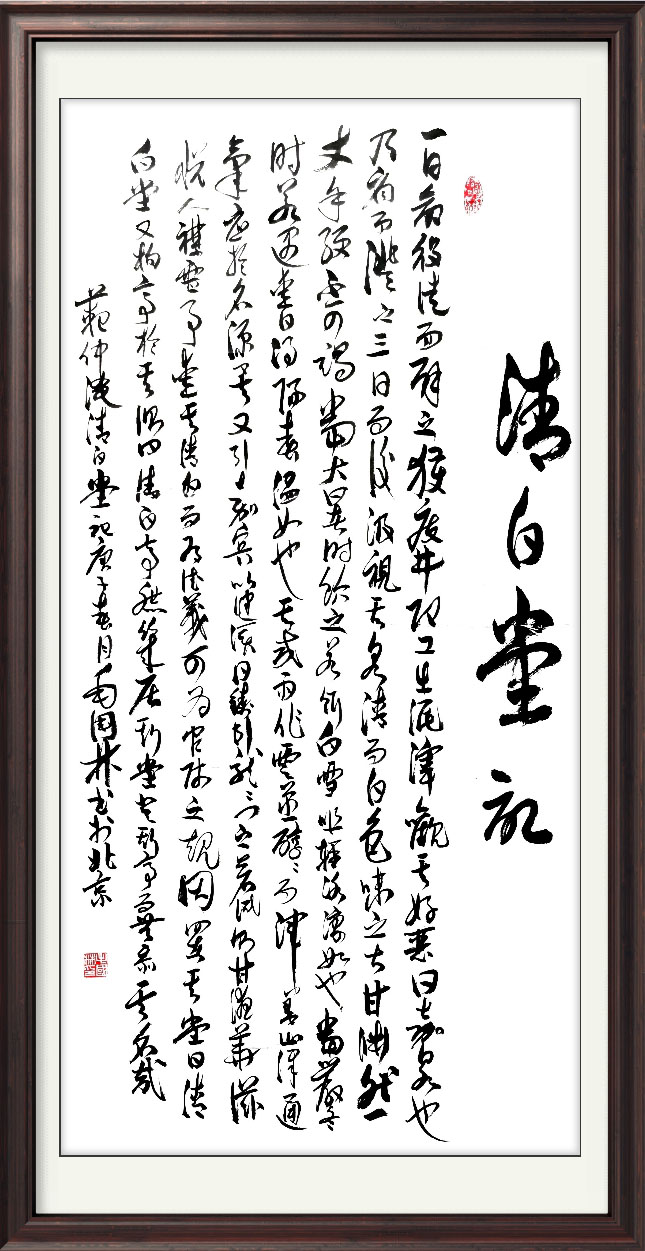 清白堂記
一日命役徒而辟之獲廢井及工出泥滓觀其好惡曰嘉泉也
乃扃而澄之三日而後汲視其泉清而白色味之甚甘淵然
丈余綆不可竭當大暑時飲之若餌白雪咀輕冰凛如也當嚴冬
时若遇愛日得陽春温如也其或雨作雲蒸醇醇而渾盖山澤通
氣應於名源矣又引嘉賓以建溪日鑄卧龍云门之茗試則甘液華滋
悦人襟靈愛其清白而有德義可为官師之規因署其堂曰清
白堂又構亭於其側曰清白亭庶幾居斯堂登斯亭而無忝其名哉
范仲淹清白堂記庚子春月毛国林书于北京